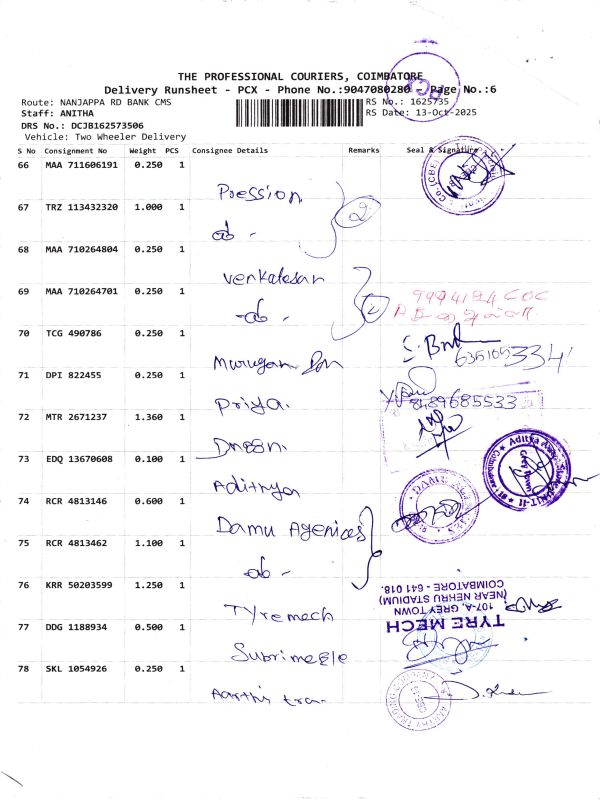 THE PROFESSIONAL COURIERS, COIMBATORE
Delivery Runsheet - PCX - Phone No.:9047080280 - Page No.:6
Route: NANJAPPA RD BANK CMS
RS No.: 1625735
Staff: ANITHA
RS Date: 13-Oct-2025
DRS No.: DCJB162573506
Vehicle: Two Wheeler Delivery
S No Consignment No Weight PCS Consignee Details Remarks Seal & Signature
66 MAA 711606191 0.250 1
Pression
2
67 TRZ 113432320 1.000 1
do -
68 MAA 710264804 0.250 1
Venkatesan
69 MAA 710264701 0.250 1
-do -
70 TCG 490786 0.250 1
Murugan
S. B
71 DPI 822455 0.250 1
Priya.
8489685533
72 MTR 2671237 1.360 1
73 EDQ 13670608 0.100 1
Adithya
74 RCR 4813146 0.600 1
Damu Agenices
75 RCR 4813462 1.100 1
do -
76 KRR 50203599 1.250 1
Tyremech
TYRE MECH
107-A, GREY TOWN
(NEAR NEHRU STADIUM)
COIMBATORE - 641 018.
77 DDG 1188934 0.500 1
78 SKL 1054926 0.250 1
Aarthi tra.